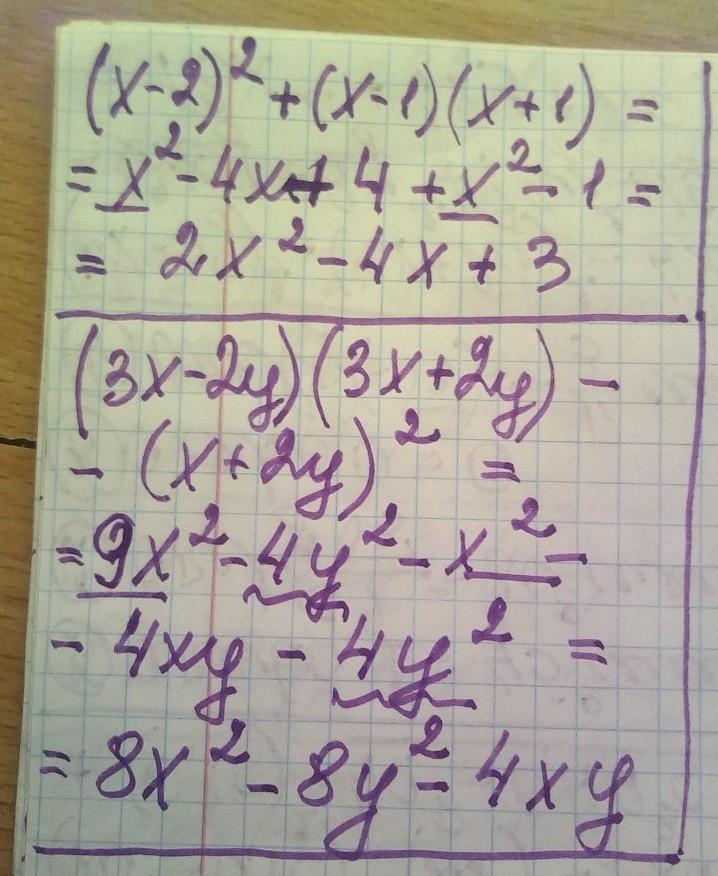 (x-2)² + (x-1)(x+1) =
= x² - 4x + 4 + x² - 1 =
= 2x² - 4x + 3
(3x-2y)(3x+2y) -
- (x+2y)² =
= 9x² - 4y² - x² -
- 4xy - 4y² =
= 8x² - 8y² - 4xy